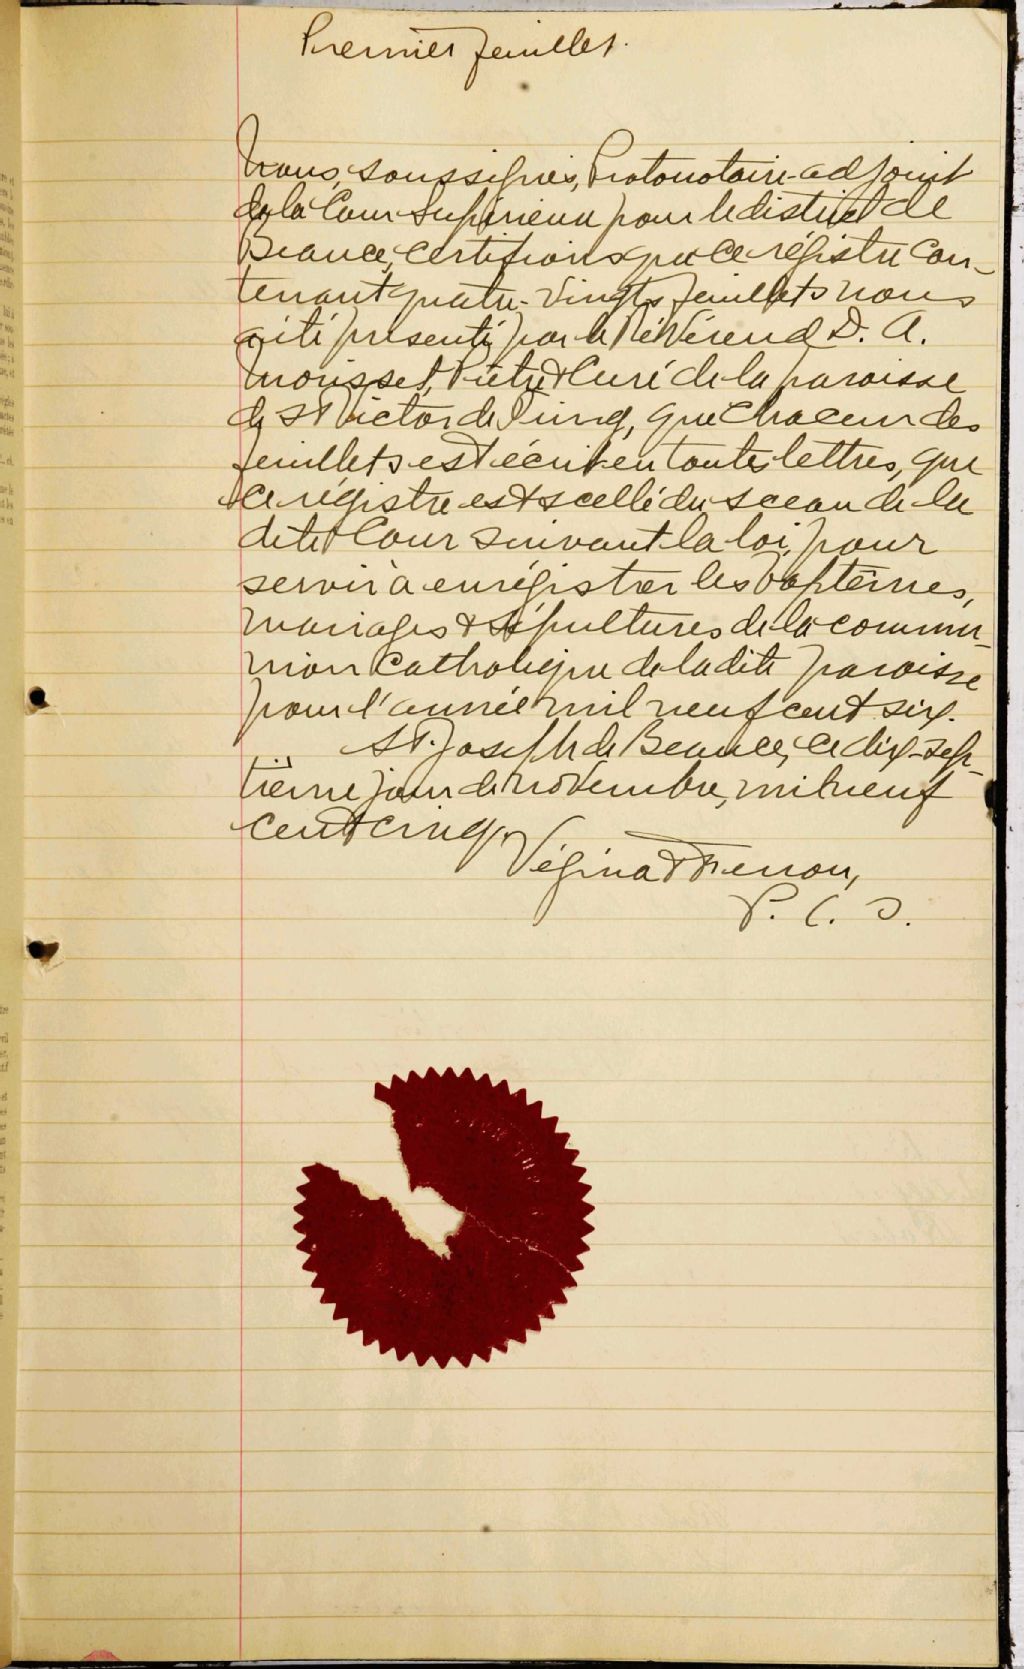 Premier feuillet.
Nous, soussignés, Protonotaire-adjoint
de la Cour Supérieure pour le district de
Beauce, certifions que ce régistre con-
tenant quatre-vingts feuillets nous
a été presenté par le Révérend D. A.
Morisset, Prêtre & Curé de la paroisse
de St Victor de Tring, que chacun des
feuillets est écrit en toutes lettres, que
ce régistre est scellé du sceau de la
dite Cour suivant la loi, pour
servir à enrégistrer les baptêmes,
mariages & sépultures de la commu-
nion Catholique de la dite paroisse
pour l'année mil neuf cent six.
St. Joseph de Beauce, ce dix-sep-
tième jour de novembre, mil neuf
cent cinq.
Vézina &
P. C. S.